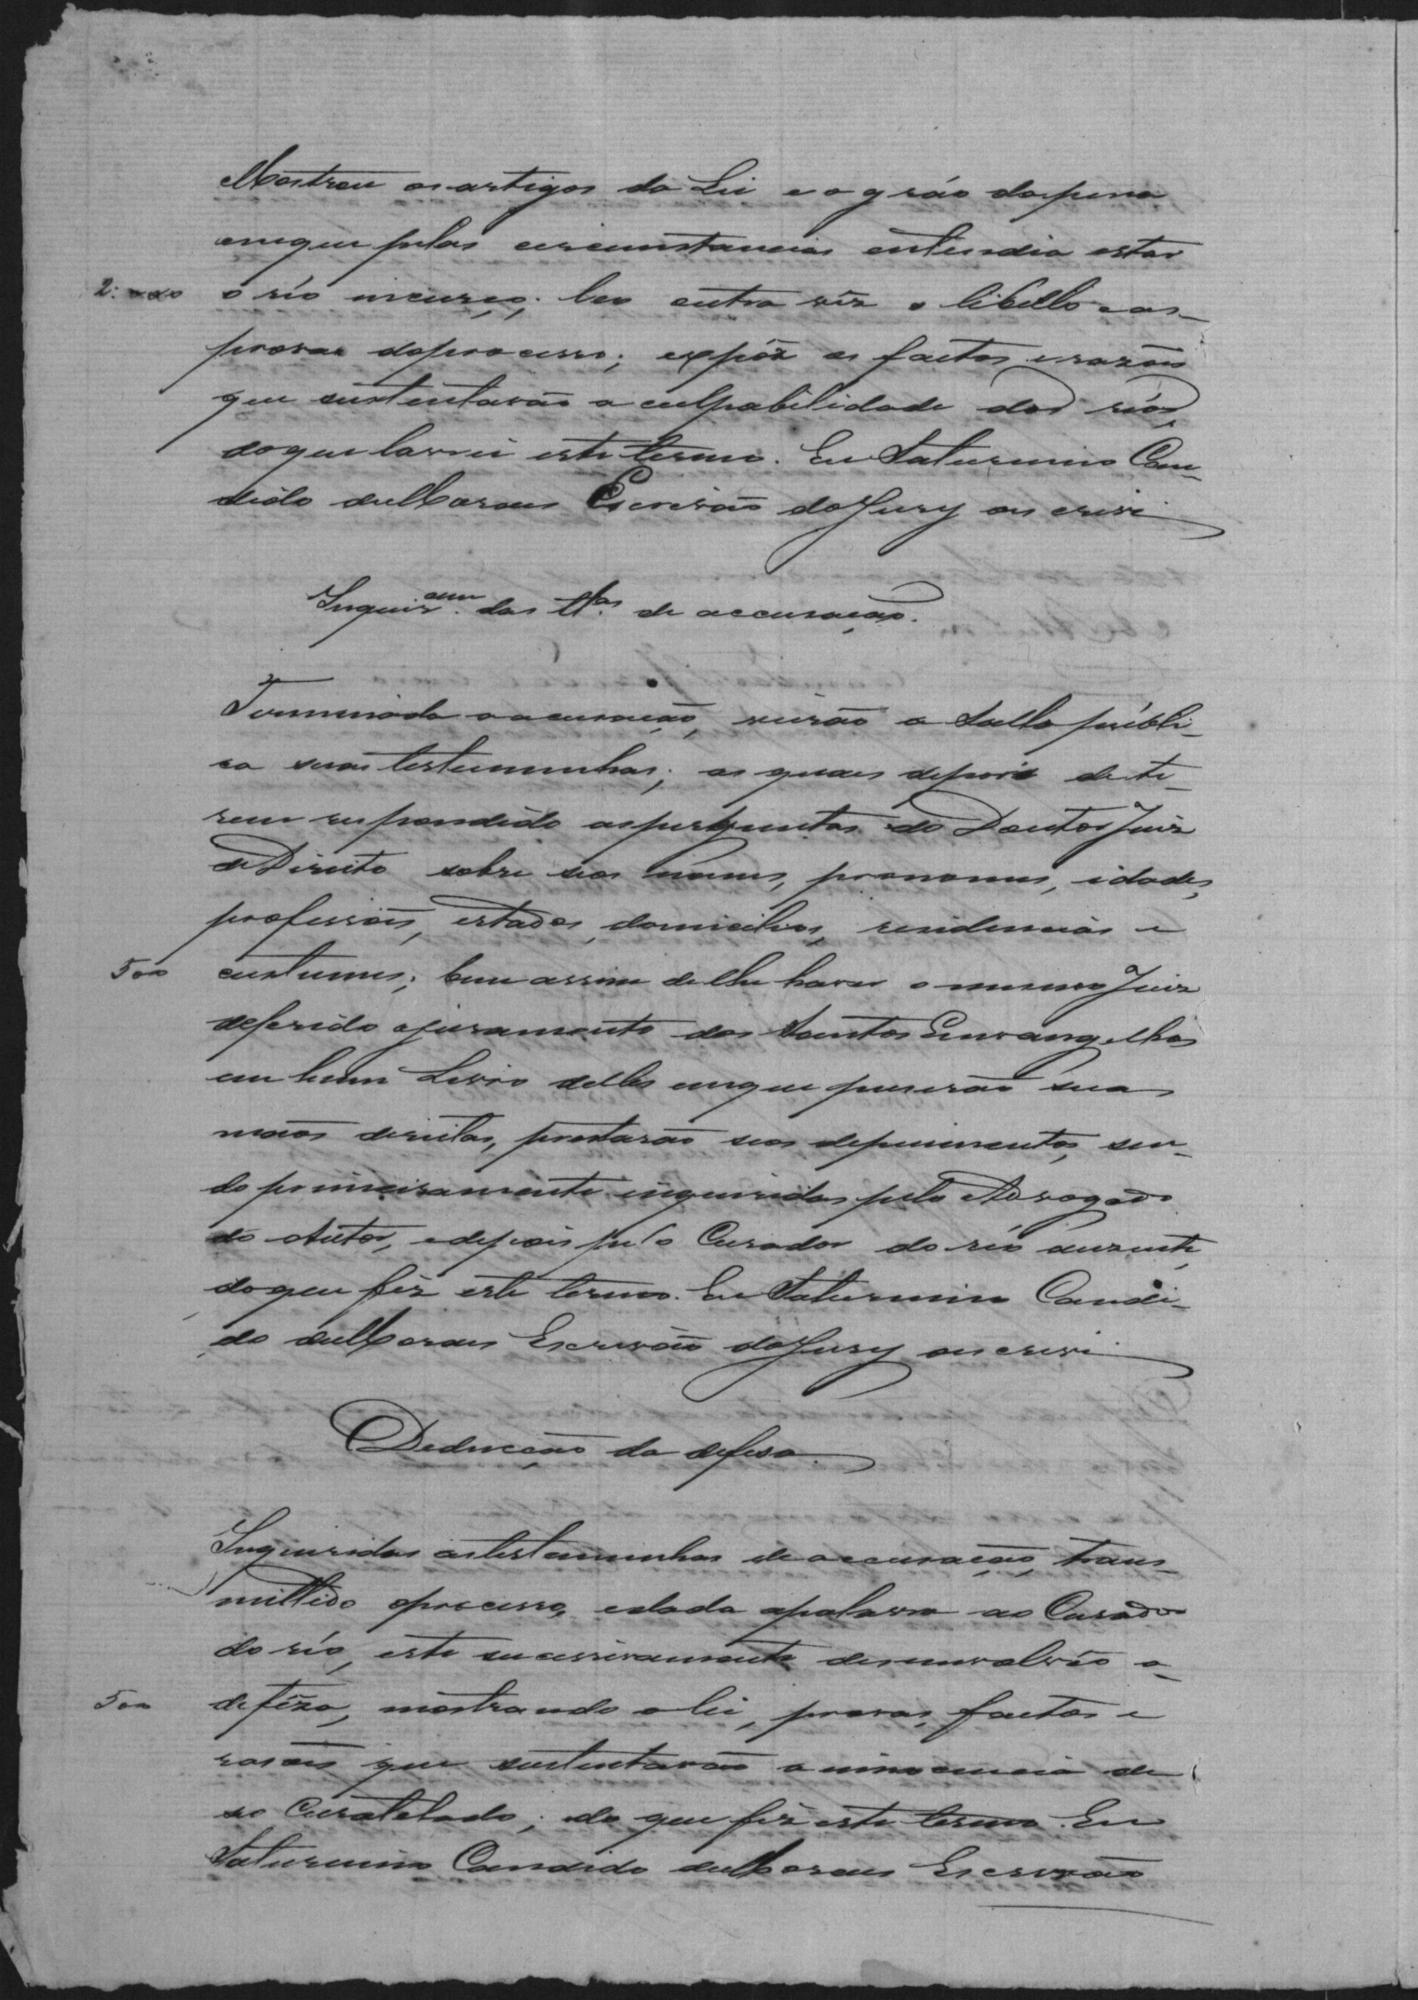 Mostrou os artigos da Lei e o gráo da pena
em que pelas circumstancias entendia estar
2:000 o réo incurço; leo outra vêz o libello e as
provas do processo; expôz os factos e razões
que sustentavão a culpabilidade dos réos,
do que lavrei este termo. Eu Saturnino Can-
dido de Moraes Escrivão do Jury o escrevi
Inquir.am das tt.as de accusação.
Terminada a accusação, vierão a salla públi-
ca suas testemunhas; as quaes depois de te-
rem respondido as perguntas do Doutor Juiz
de Direito sobre seos nomes, pronomes, idades,
profissões, estados, domicilios, residencias e
500 custumes; bem assim de lhe haver o mesmo Juiz
deferido o juramento dos Santos Envangelhos
em hum Livro delles em que puserão suas
mãos direitas, prestarão seos depuimentos, sen-
do primeiramente inquiridas pelo Advogado
do Autor, e depois pelo Curador do réo auzente,
do que fiz este termo. Eu Saturnino Candi-
do de Moraes Escrivão do Jury o escrevi
Deducção da defesa.
Inqueridas as testemunhas de accusação, trans-
mittido o processo, e dada a palavra ao Curador
do réo, este sucessivamente desenvolvêo a
500 defêza, mostrando a lei, provas, factos e
rasões que sustentavão a innocencia de
seo Curatelado; do que fiz este termo. Eu
Saturnino Candido de Moraes Escrivão